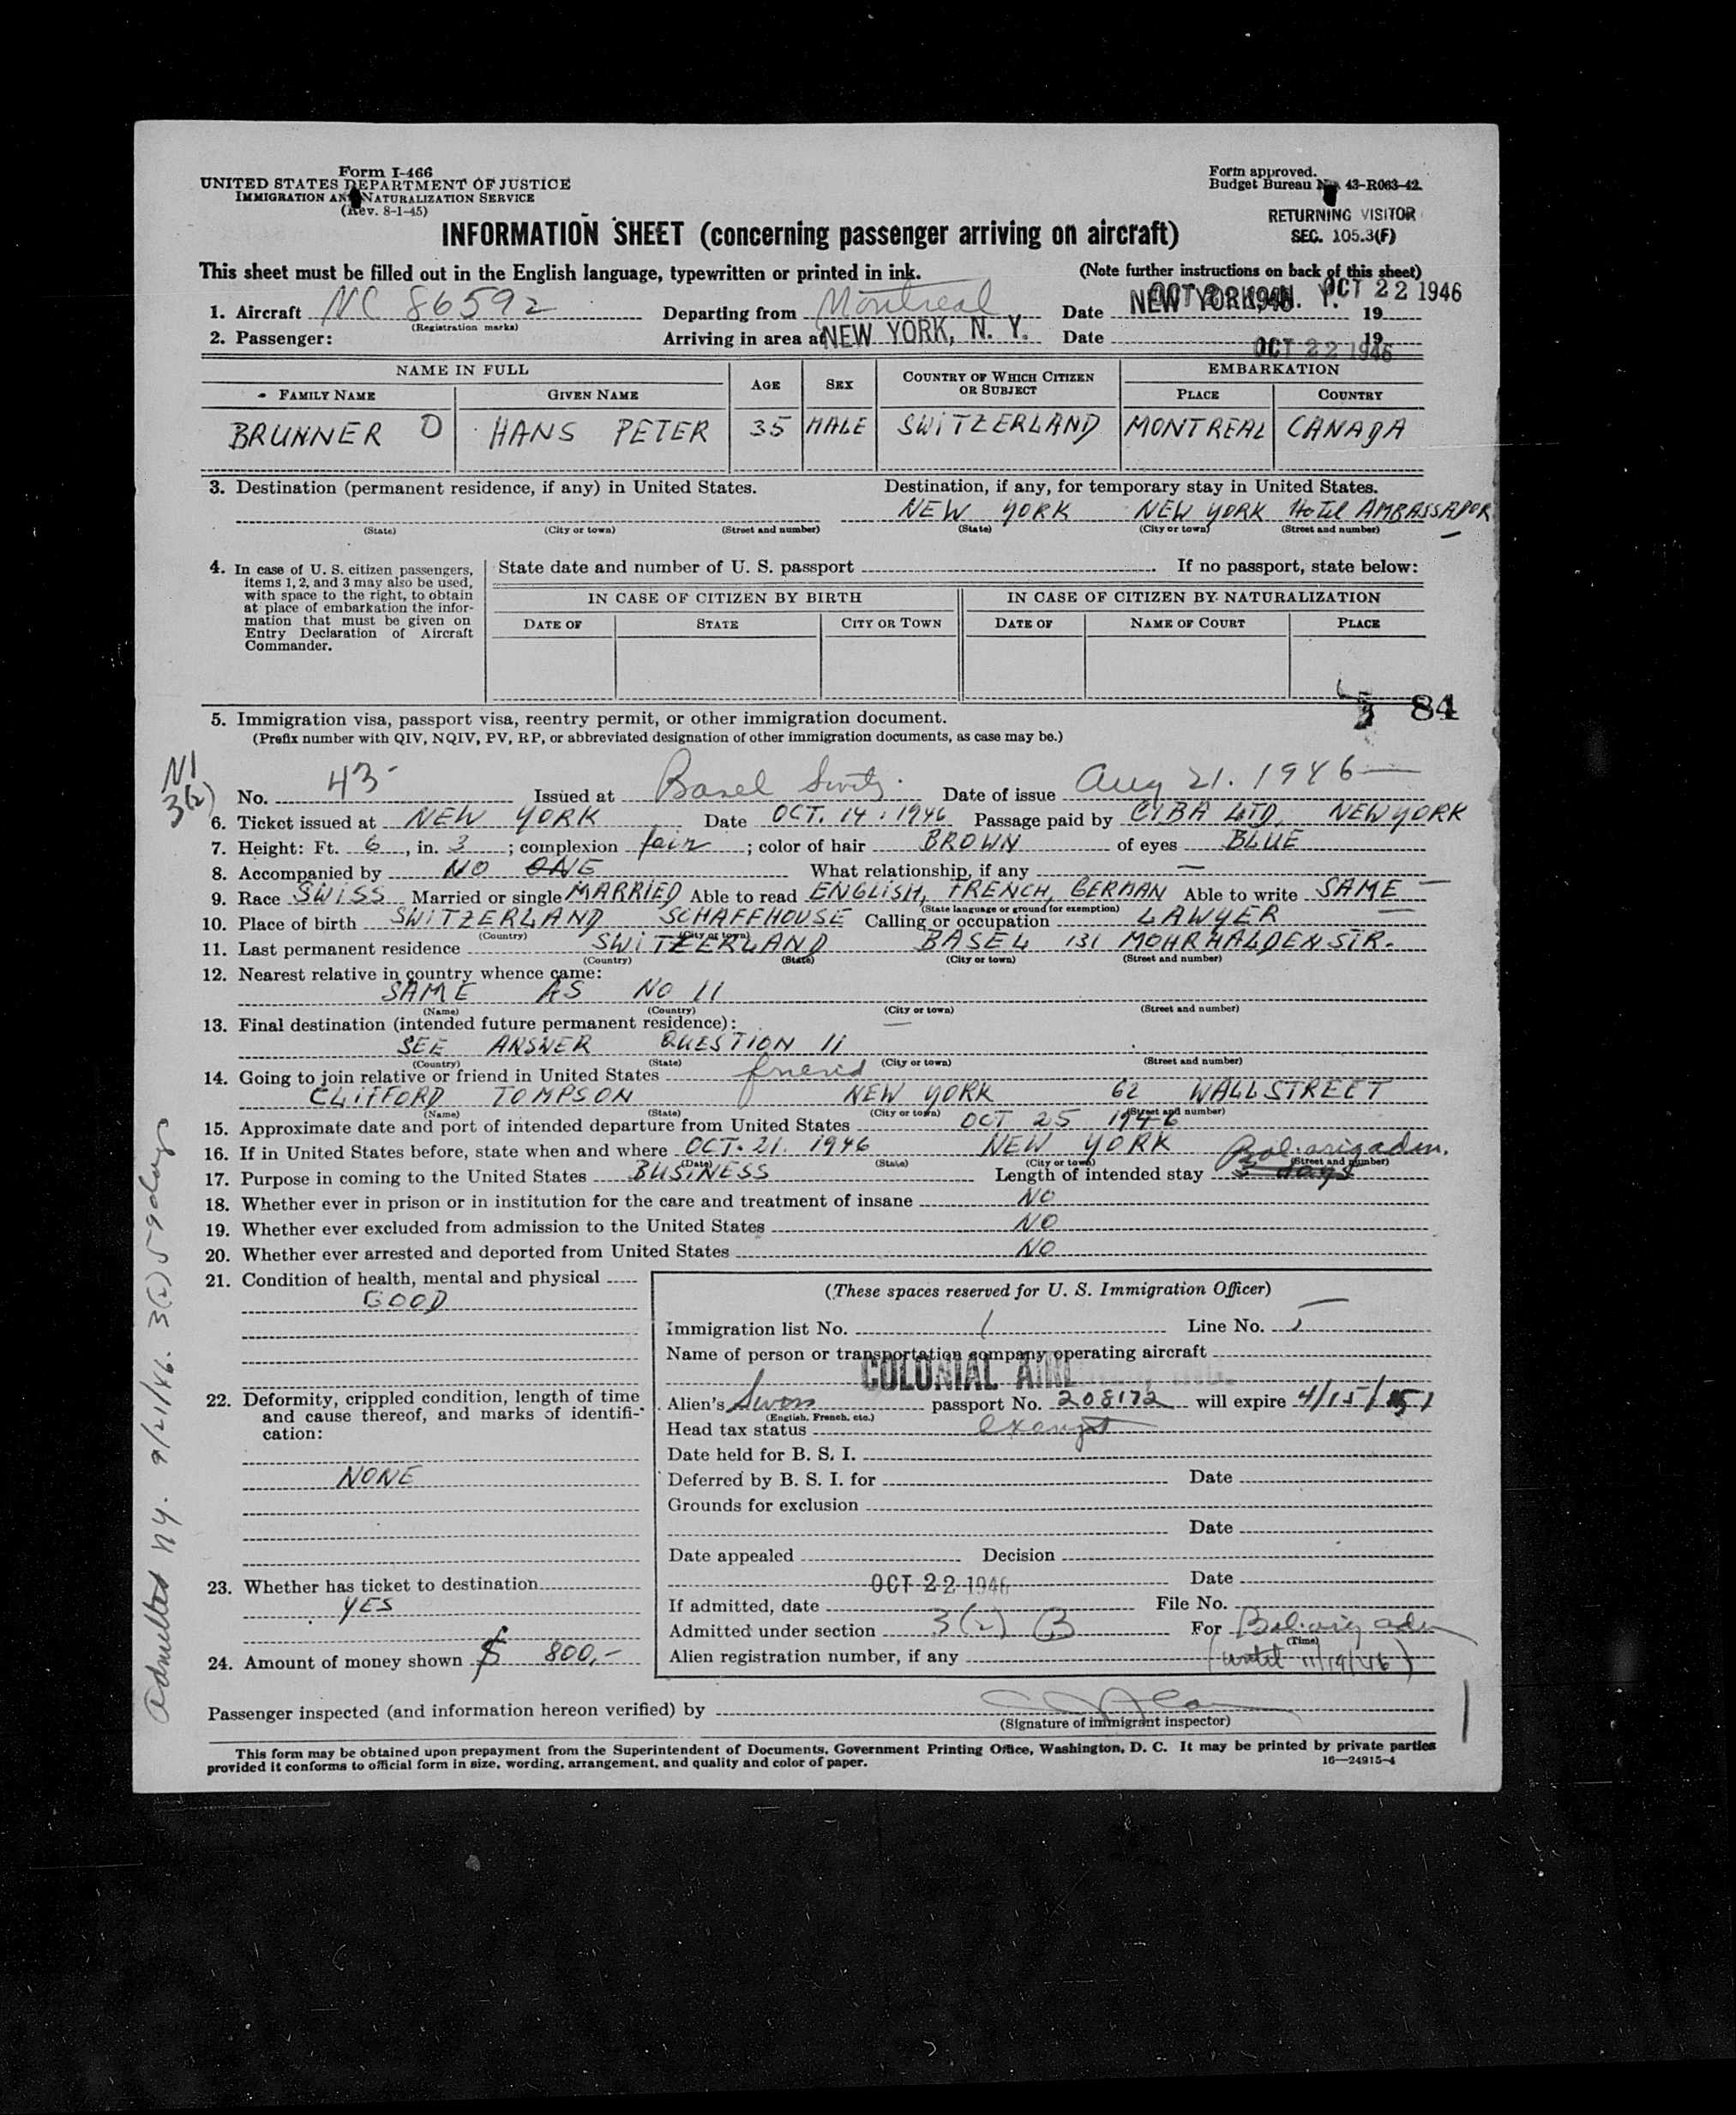 Form I-466
UNITED STATES DEPARTMENT OF JUSTICE
IMMIGRATION AND NATURALIZATION SERVICE
(Rev. 8-1-45)
Form approved.
Budget Bureau No. 43-R063-42.
RETURNING VISITOR
SEC. 105.3(F)
INFORMATION SHEET (concerning passenger arriving on aircraft)
This sheet must be filled out in the English language, typewritten or printed in ink. (Note further instructions on back of this sheet)
1. Aircraft NC 86592 Departing from Montreal Date NEW YORK, N. Y. OCT 22 1946 19
(Registration marks)
2. Passenger: Arriving in area at NEW YORK, N. Y. Date OCT 22 1946 19
NAME IN FULL AGE SEX COUNTRY OF WHICH CITIZEN OR SUBJECT EMBARKATION
FAMILY NAME GIVEN NAME PLACE COUNTRY
BRUNNER O HANS PETER 35 MALE SWITZERLAND MONTREAL CANADA
3. Destination (permanent residence, if any) in United States. Destination, if any, for temporary stay in United States.
NEW YORK NEW YORK HOTEL AMBASSADOR
(State) (City or town) (Street and number) (State) (City or town) (Street and number)
4. In case of U. S. citizen passengers, items 1, 2, and 3 may also be used, with space to the right, to obtain at place of embarkation the information that must be given on Entry Declaration of Aircraft Commander.
State date and number of U. S. passport If no passport, state below:
IN CASE OF CITIZEN BY BIRTH IN CASE OF CITIZEN BY NATURALIZATION
DATE OF STATE CITY OR TOWN DATE OF NAME OF COURT PLACE
84
5. Immigration visa, passport visa, reentry permit, or other immigration document.
(Prefix number with QIV, NQIV, PV, RP, or abbreviated designation of other immigration documents, as case may be.)
NI
3(2)
No. 43 Issued at Basel Switz. Date of issue Aug 21. 1946
6. Ticket issued at NEW YORK Date OCT. 14. 1946 Passage paid by CIBA LTD. NEW YORK
7. Height: Ft. 6, in. 3; complexion fair; color of hair BROWN of eyes BLUE
8. Accompanied by NO ONE What relationship, if any —
9. Race SWISS Married or single MARRIED Able to read ENGLISH, FRENCH, GERMAN Able to write SAME
(State language or ground for exemption)
10. Place of birth SWITZERLAND SCHAFFHOUSE Calling or occupation LAWYER
(Country) (City or town)
11. Last permanent residence SWITZERLAND BASEL 131 MOHRHALDENSTR.
(Country) (State) (City or town) (Street and number)
12. Nearest relative in country whence came:
SAME AS NO 11
(Name) (Country) (City or town) (Street and number)
13. Final destination (intended future permanent residence):
SEE ANSWER QUESTION 11
(Country) (State) (City or town) (Street and number)
14. Going to join relative or friend in United States friend
CLIFFORD TOMPSON NEW YORK 62 WALLSTREET
(Name) (State) (City or town) (Street and number)
15. Approximate date and port of intended departure from United States OCT 25 1946
16. If in United States before, state when and where OCT. 21. 1946 NEW YORK
(Date) (State) (City or town) (Street and number)
17. Purpose in coming to the United States BUSINESS Length of intended stay Bal. orig adm.
18. Whether ever in prison or in institution for the care and treatment of insane NO
19. Whether ever excluded from admission to the United States NO
20. Whether ever arrested and deported from United States NO
21. Condition of health, mental and physical
GOOD
22. Deformity, crippled condition, length of time and cause thereof, and marks of identification:
NONE
23. Whether has ticket to destination
YES
24. Amount of money shown $ 800,-
(These spaces reserved for U. S. Immigration Officer)
Immigration list No. 1 Line No.
Name of person or transportation company operating aircraft
COLONIAL AIRL
Alien's Swiss passport No. 208172 will expire 4/15/51
(English, French, etc.)
Head tax status exempt
Date held for B. S. I.
Deferred by B. S. I. for Date
Grounds for exclusion
Date
Date appealed Decision
OCT 22 1946 Date
If admitted, date File No.
Admitted under section 3(2) B For Bal. orig adm
(Time)
Alien registration number, if any (until 11/19/46)
Passenger inspected (and information hereon verified) by
(Signature of immigrant inspector)
This form may be obtained upon prepayment from the Superintendent of Documents, Government Printing Office, Washington, D. C. It may be printed by private parties
provided it conforms to official form in size, wording, arrangement, and quality and color of paper. 16—24915-4
Admitted NY. 9/21/46. 3(2) 59 days